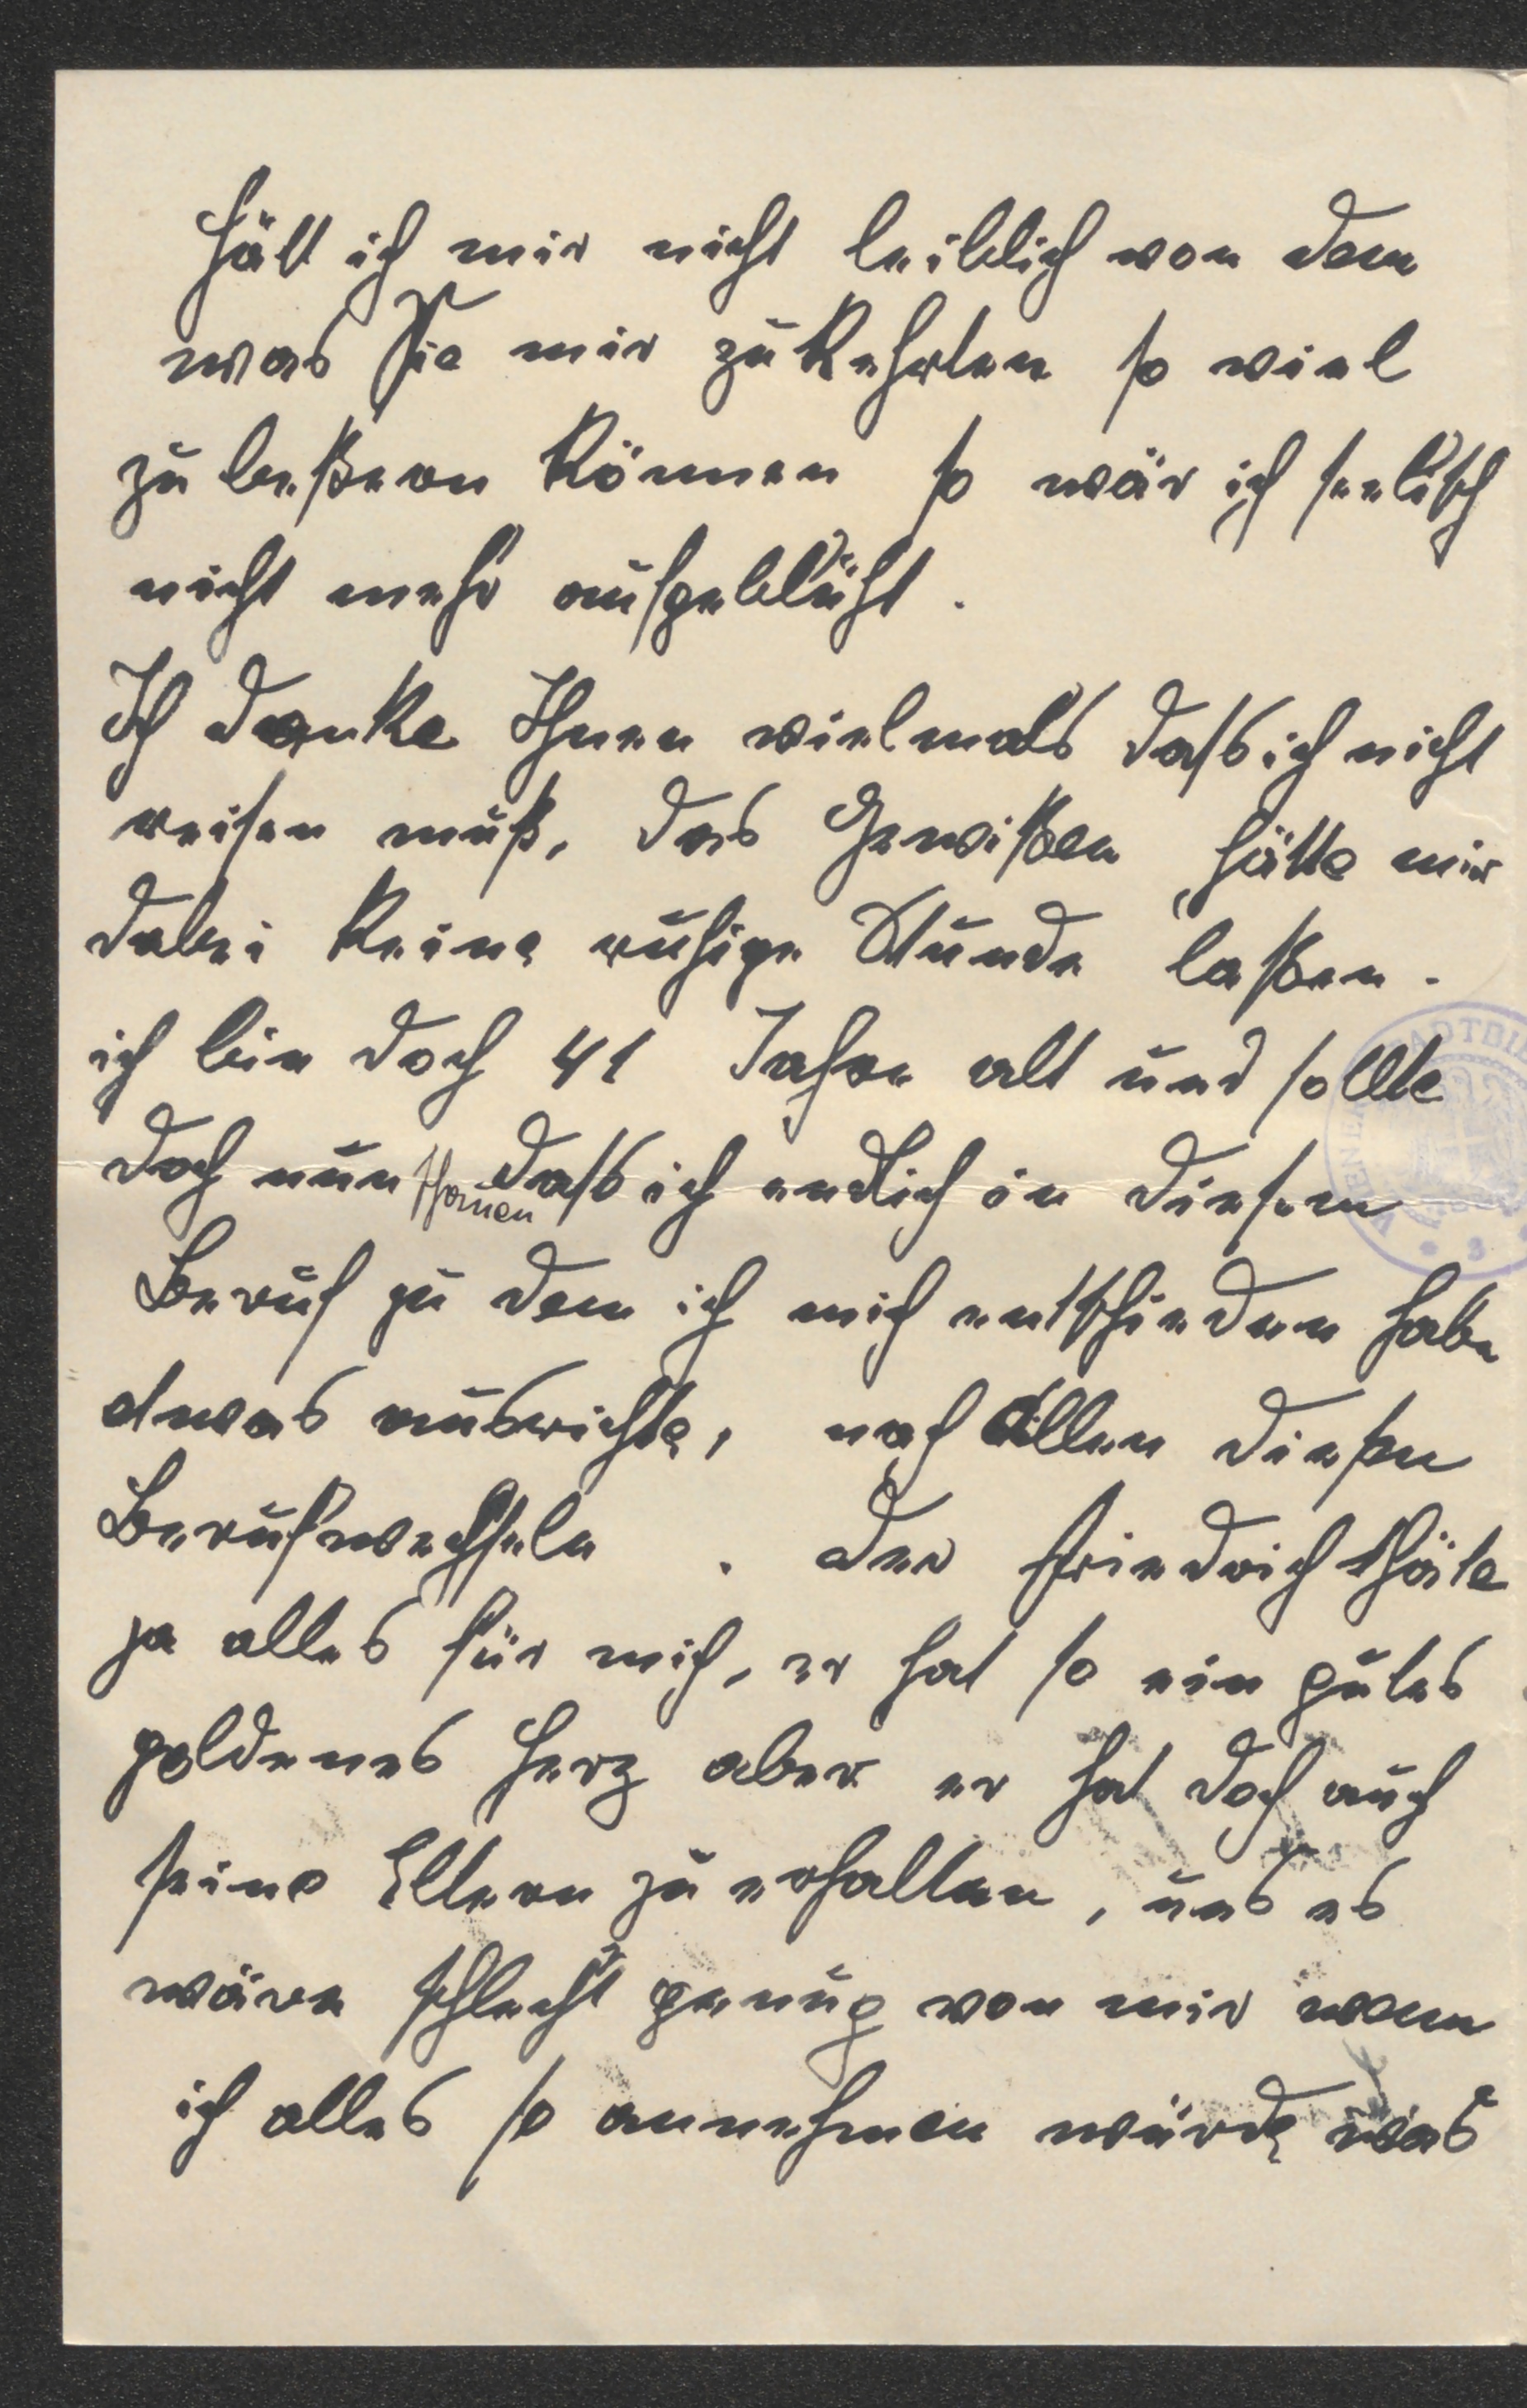 hätt ich mir nicht leiblich von dem
was Sie mir zukehrten so viel
zu beßern können so wär ich seelisch
nicht mehr aufgeblüht.
Ich danke Ihnen vielmals dass ich nicht
reisen muß, das Gewißen hätte mir
dabei keine ruhige Stunde laßen.
ich bin doch 41 Jahre alt und sollte
doch nun schauen dass ich endlich in diesem
Beruf zu dem ich mich entschieden habe
etwas ausrichte, nach Allen diesen
Berufswechseln. der Friedrich thäte
ja alles für mich, er hat so ein gutes
goldenes Herz aber er hat doch auch
seine Eltern zu erhalten, und es
wäre schlecht genug von mir wenn
ich alles so annehmen würde was